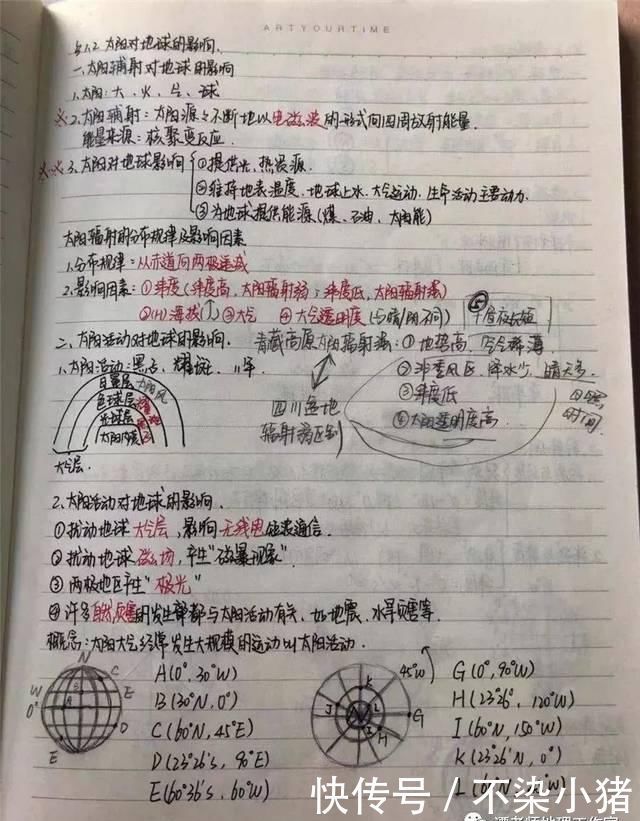 ARTYOURTIME
§1.2 太阳对地球的影响.
一、太阳辐射对地球的影响
1.太阳:大、火、气、球
※2.太阳辐射:太阳源々不断地以电磁波的形式向四周放射能量.
能量来源:核聚变反应.
※※3.太阳对地球影响 ①提供光、热资源.
②维持地表温度、地球上水、大气运动、生命活动主要动力.
③为地球提供能源(煤、石油、太阳能)
太阳辐射的分布规律及影响因素
1.分布规律:从赤道向两极递减
2.影响因素:①纬度(纬度高,太阳辐射弱;纬度低,太阳辐射强)
②(H)海拔(↑) ③大气 ④大气透明度(与晴/阴不同) ⑤昼夜长短
二、太阳活动对地球的影响. 青藏高原太阳辐射强:①地势高,空气稀薄
1.太阳活动:黑子、耀斑、11年 ②冬季风区,降水少,晴天多.
日冕层 太阳风 ③纬度低 日照时间.
色球层 耀斑 四川盆地 ④太阳透明度高.
光球层 黑子 辐射弱区别
太阳内部
大气层.
2.太阳活动对地球的影响.
①扰动地球大气层,影响无线电磁波通信.
②扰动地球磁场,产生"磁暴现象".
③两极地区产生"极光"
④许多自然灾害的发生常都与太阳活动有关,如地震、水旱灾害等.
概念:太阳大气经常发生大规模的运动叫太阳活动.
N
W
0°
C
E
D
E
A(0°,30°W)
B(30°N,0°)
C(60°N,45°E)
D(23°26′S,90°E)
E(60°36′S,60°W)
45°W
K
J
N
L
I
H
G
G(0°,90°W)
H(23°26′,120°W)
I(60°N,150°W)
K(23°26′N,0°)
快传号 / 不染小猪